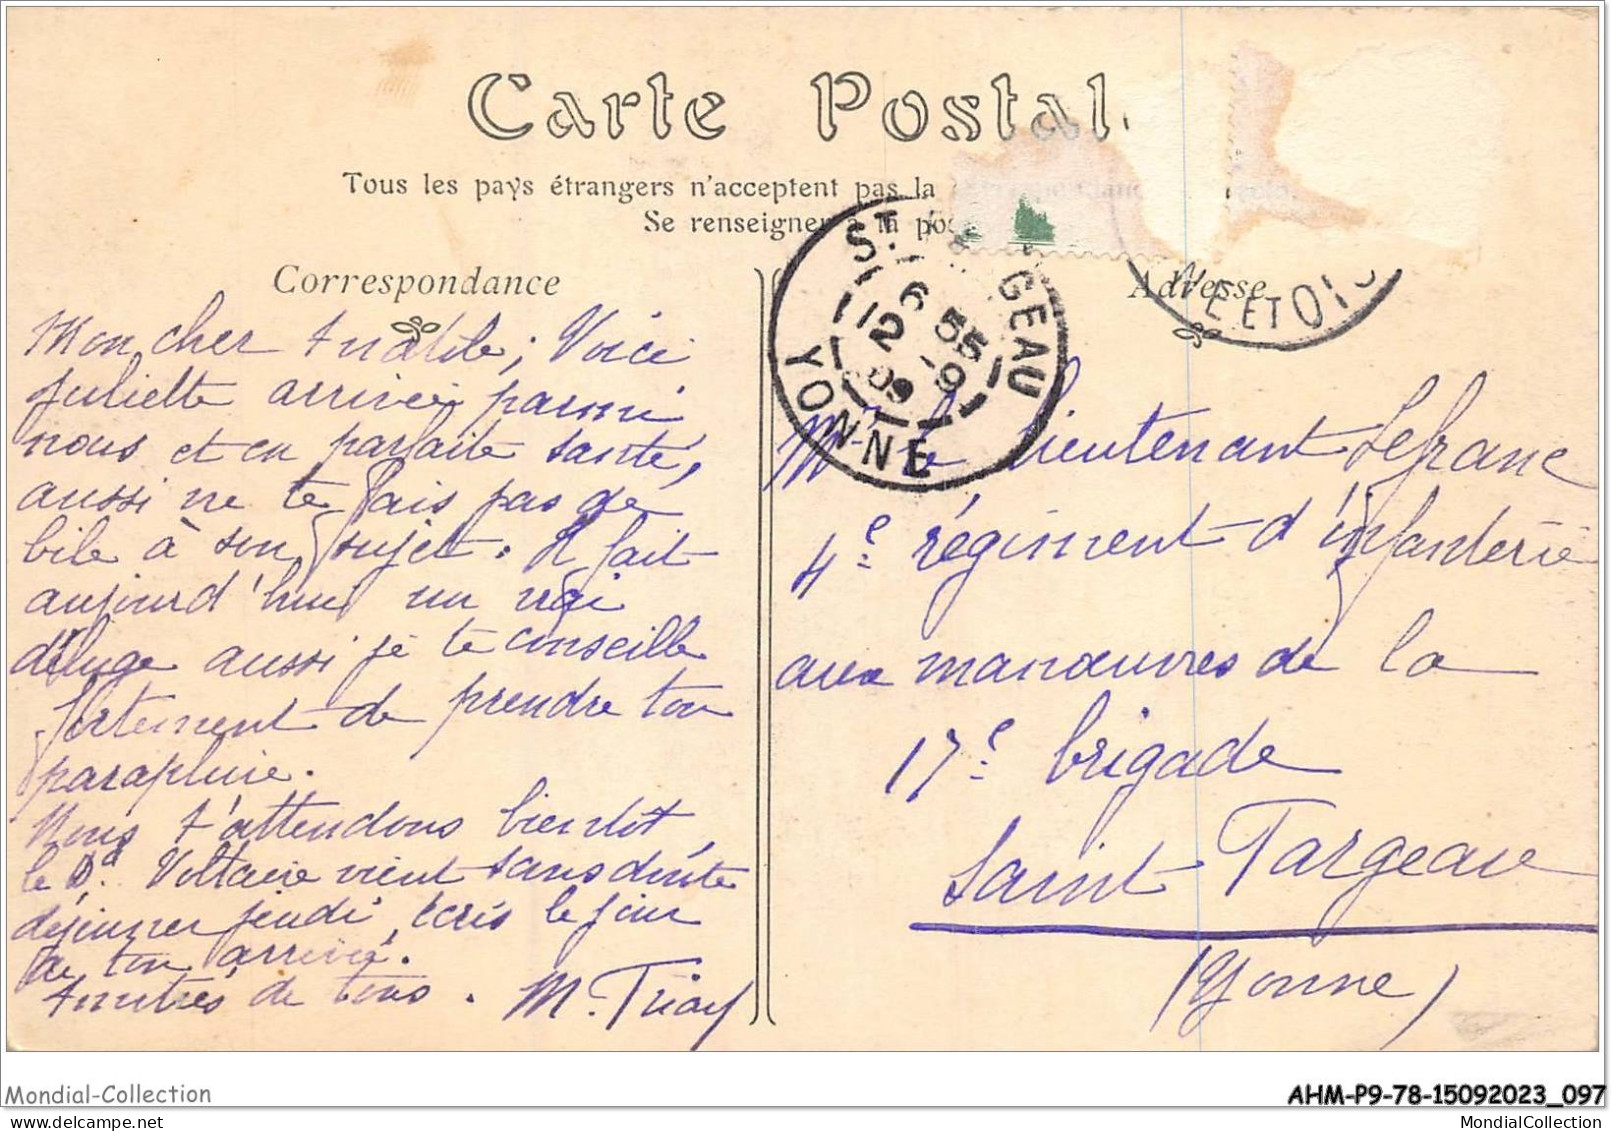 Carte Postale
Tous les pays étrangers n'acceptent pas la
Se renseigner à la pos
Correspondance
Adresse
ST. GEAU
6 55
12 -9
09
YONNE
NE ET OIS
Mon cher Anatole ; Voici
Juliette arrivée parmi
nous et en parfaite santé,
aussi ne te fais pas de
bile à son sujet. Il fait
aujourd'hui un vrai
déluge aussi je te conseille
fortement de prendre ton
parapluie.
Nous t'attendons bientôt,
le Dr Voltaire vient sans doute
déjeuner jeudi, écris le jour
de ton arrivée.
Amitiés de tous. M. Triay
Mr le Lieutenant Lefranc
4e régiment d'infanterie
aux manœuvres de la
17e brigade
Saint Fargeau
(Yonne)
Mondial-Collection
AHM-P9-78-15092023_097
MondialCollection